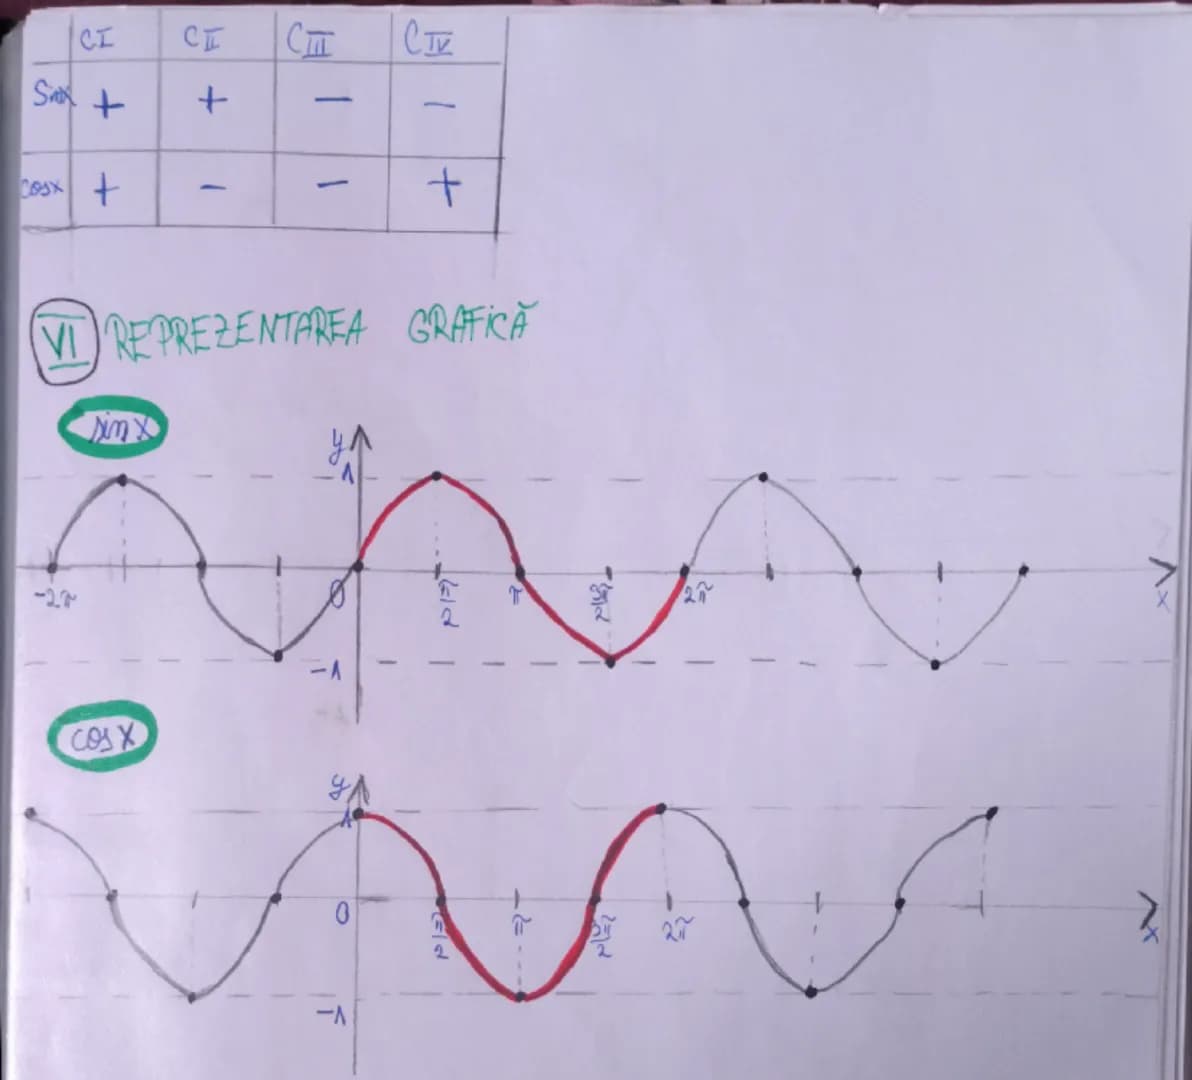 CI CII CIII CIV
sinx + + − −
cosx + − − +
VI REPREZENTAREA GRAFICĂ
sin x
y
1
-2π 0 π/2 π 3π/2 2π x
-1
cos x
y
1
0 π/2 π 3π/2 2π x
-1